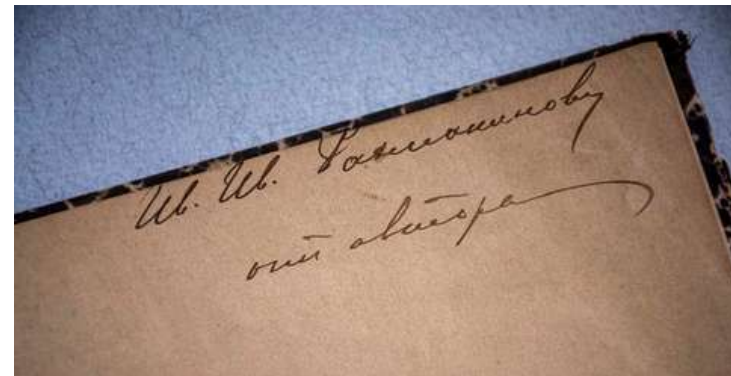 Ив. Ив. Рахманинову
отъ автора